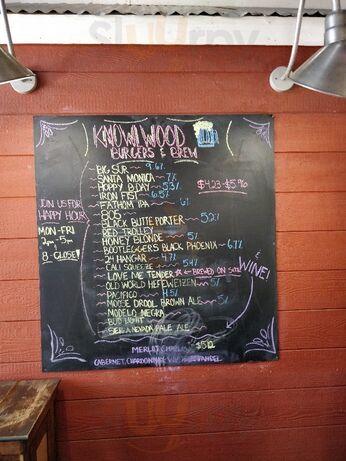 KNOWLWOOD
BURGERS & BREW
BIG SUR 9.6%
SANTA MONICA 7%
HOPPY B.DAY 5.3%
IRON FIST 6.5%
FATHOM IPA 6%
805
BLACK BUTTE PORTER 5.2%
RED TROLLEY
HONEY BLONDE 5%
BOOTLEGGERS BLACK PHOENIX 6.7%
24 HANGAR 4.7%
CALI SQUEEZE 5.4%
LOVE ME TENDER BREWED ON SITE
OLD WORLD HEFEWEIZEN 5%
PACIFICO 4.5%
MOOSE DROOL BROWN ALE 5%
MODELO NEGRA
BUD LIGHT
SIERRA NEVADA PALE ALE
$4.23-$5.96
JOIN US FOR
HAPPY HOUR
MON-FRI
2pm-5pm
8-CLOSE!!
& WINE!
MERLOT,
CABERNET, CHARDONNAY,